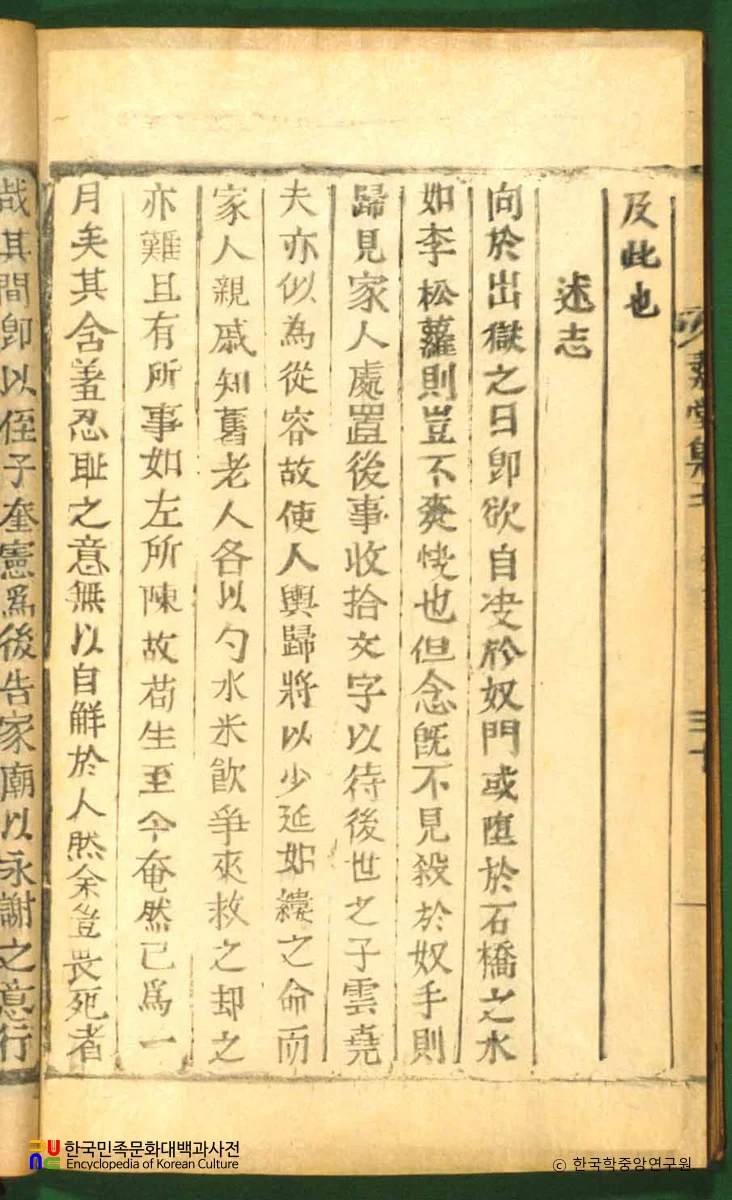 堂集
及此也
述志
向於出獄之日卽欲自决於奴門或墮於石橋之水
如李松蘿則豈不爽快也但念旣不見殺於奴手則
歸見家人處置後事收拾文字以待後世之子雲堯
夫亦似為從容故使人輿歸將以少延如縷之命而
家人親戚知舊老人各以勺水米飮爭來救之却之
亦難且有所事如左所陳故苟生至今奄然已爲一
月矣其含羞忍耻之意無以自鮮於人然余豈畏死者
哉其間卽以侄子奎憲爲後告家廟以永謝之意行
한국민족문화대백과사전
Encyclopedia of Korean Culture
© 한국학중앙연구원